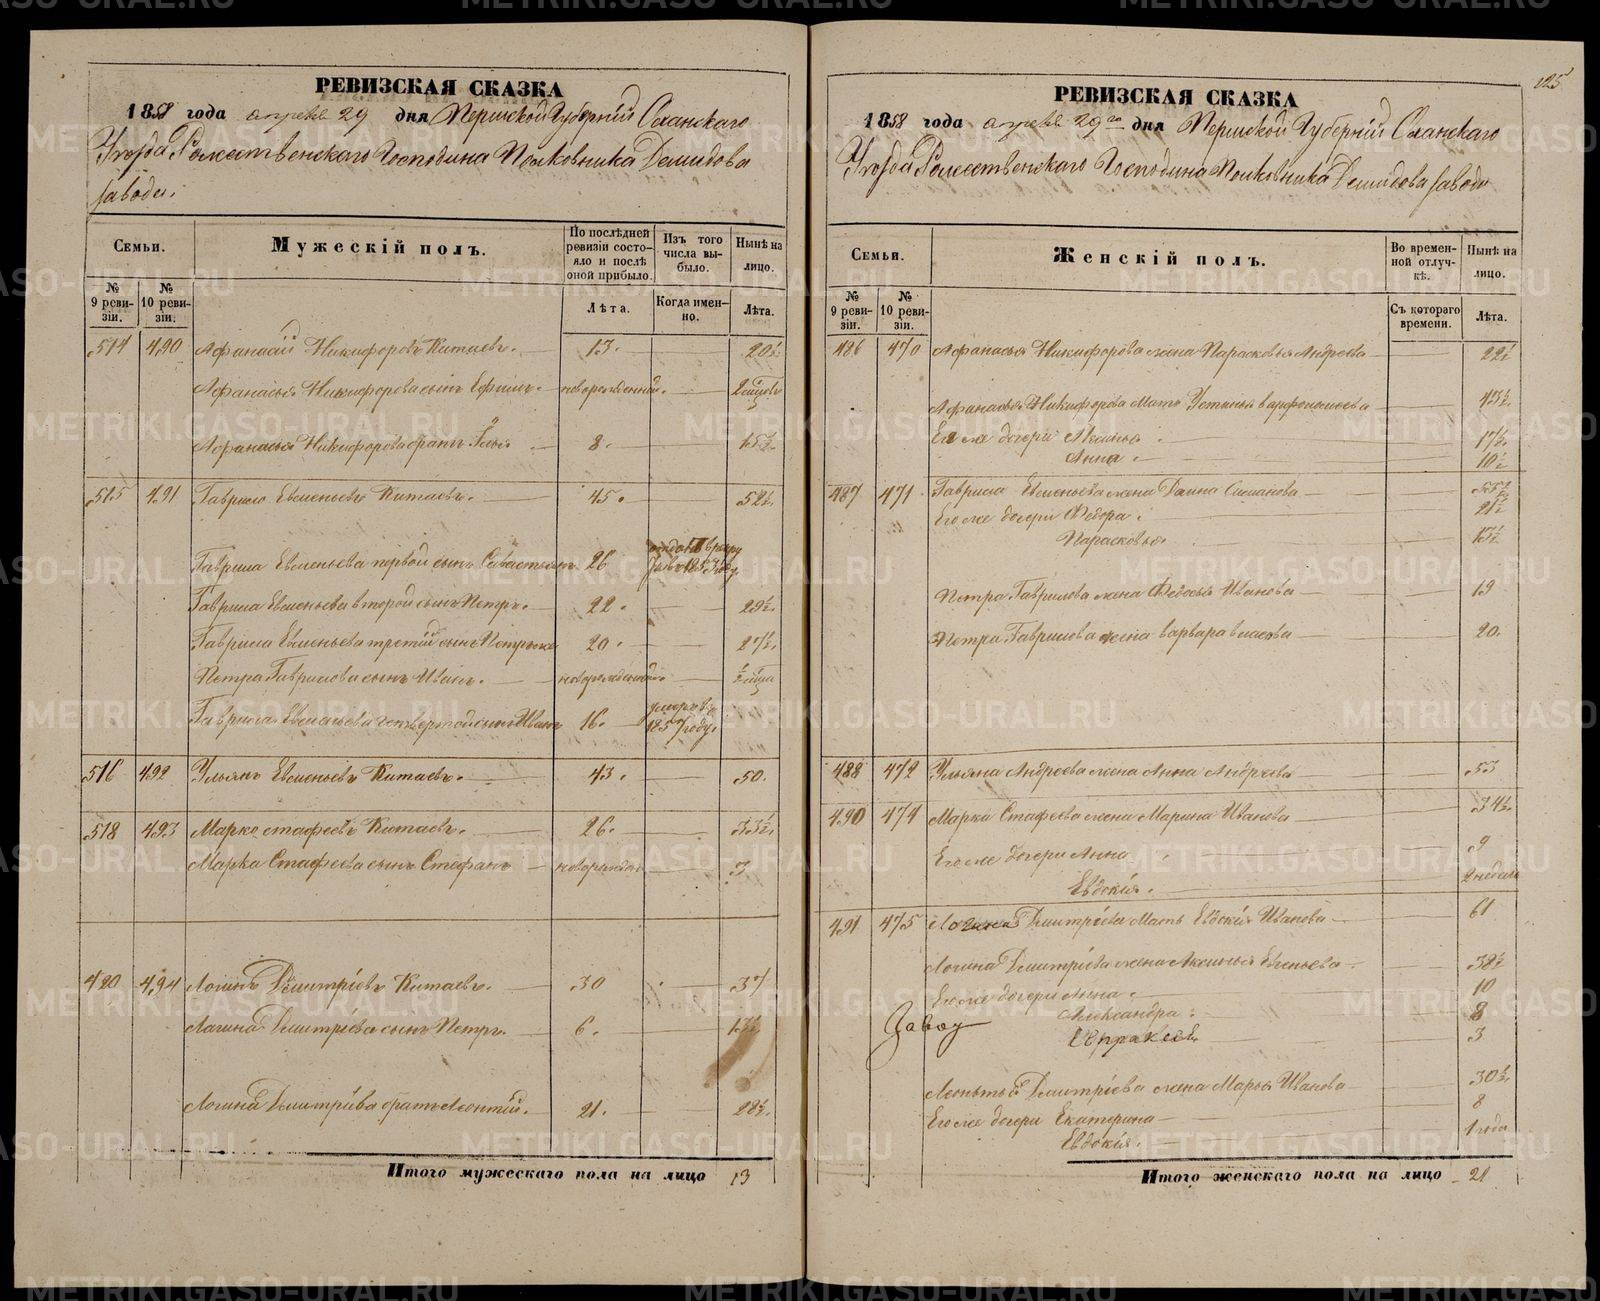 125
РЕВИЗСКАЯ СКАЗКА
1858 года апреля 29 дня Пермской Губернiй Оханскаго
Уезда Рожественскаго Господина Полковника Демидова
завода.
Семьи.
Мужескiй полъ.
По послѣдней ревизiи состояло и послѣ оной прибыло.
Изъ того числа выбыло.
Нынѣ на лицо.
№ 9 ревизiи.
№ 10 ревизiи.
Лѣта.
Когда именно.
Лѣта.
514 490 Афанасiй Никифоровъ Китаевъ. 13. 20½
Афанасья Никифорова сынъ Ефимъ. новорожденный.
Афанасья Никифорова братъ Илья 8. 15½
515 491 Гаврило Евменьевъ Китаевъ. 45. 52½
Гаврила Евменьева первой сынъ Савастьянъ 26
Гаврила Евменьева второй сынъ Петръ. 22. 29½
Гаврила Евменьева третiй сынъ Петръ же 20. 27½
Петра Гаврилова сынъ Иванъ. новорожденный.
Гаврила Евменьева четвертой сынъ Иванъ 16. умеръ въ 1857 году.
516 492 Ульянъ Евменьевъ Китаевъ. 43. 50.
518 493 Марко Стафеевъ Китаевъ. 26. 33½
Марка Стафеева сынъ Стефанъ 3
480 494 Логинъ Дмитрiевъ Китаевъ. 30 37
Логина Дмитрiева сынъ Петръ. 6. 13½
Логина Дмитрiева братъ Леонтiй. 21. 28½
Итого мужескаго пола на лицо 13
РЕВИЗСКАЯ СКАЗКА
1858 года апреля 29го дня Пермской Губернiй Оханскаго
Уезда Рожественскаго Господина Полковника Демидова завода
Семьи.
Женскiй полъ.
Во временной отлучкѣ.
Нынѣ на лицо.
№ 9 ревизiи.
№ 10 ревизiи.
Съ котораго времени.
Лѣта.
486 470 Афанасья Никифорова жена Парасковья Андреева 22½
Афанасья Никифорова мать Устинья Варфоломеева 43½
Его же дочери Аксинья 17½
Анна. 10½
487 471 Гаврила Евменьева жена Симанова 55½
Его же дочери Федора. 21½
Парасковья. 13½
Петра Гаврилова жена Федосья Иванова 19
Петра Гаврилова жена Варвара Власова 20.
488 472 Ульяна Андреева жена Анна Андреева 53
490 474 Марка Стафеева жена Марина Иванова 34½
Его же дочери Анна 9
Евдокiя. 2 недели
491 475 Логина Дмитрiева мать Евдокiя Иванова 61
Логина Дмитрiева жена Аксинья Евгеньева 38½
Его же дочери Анна. 10
Александра. 8
Завод
3
Леонтья Дмитрiева жена Марья Иванова 30½
Его же дочери Екатерина 8
Евдокiя. 1 года
Итого женскаго пола на лицо 21
METRIKI.GASO-URAL.RU